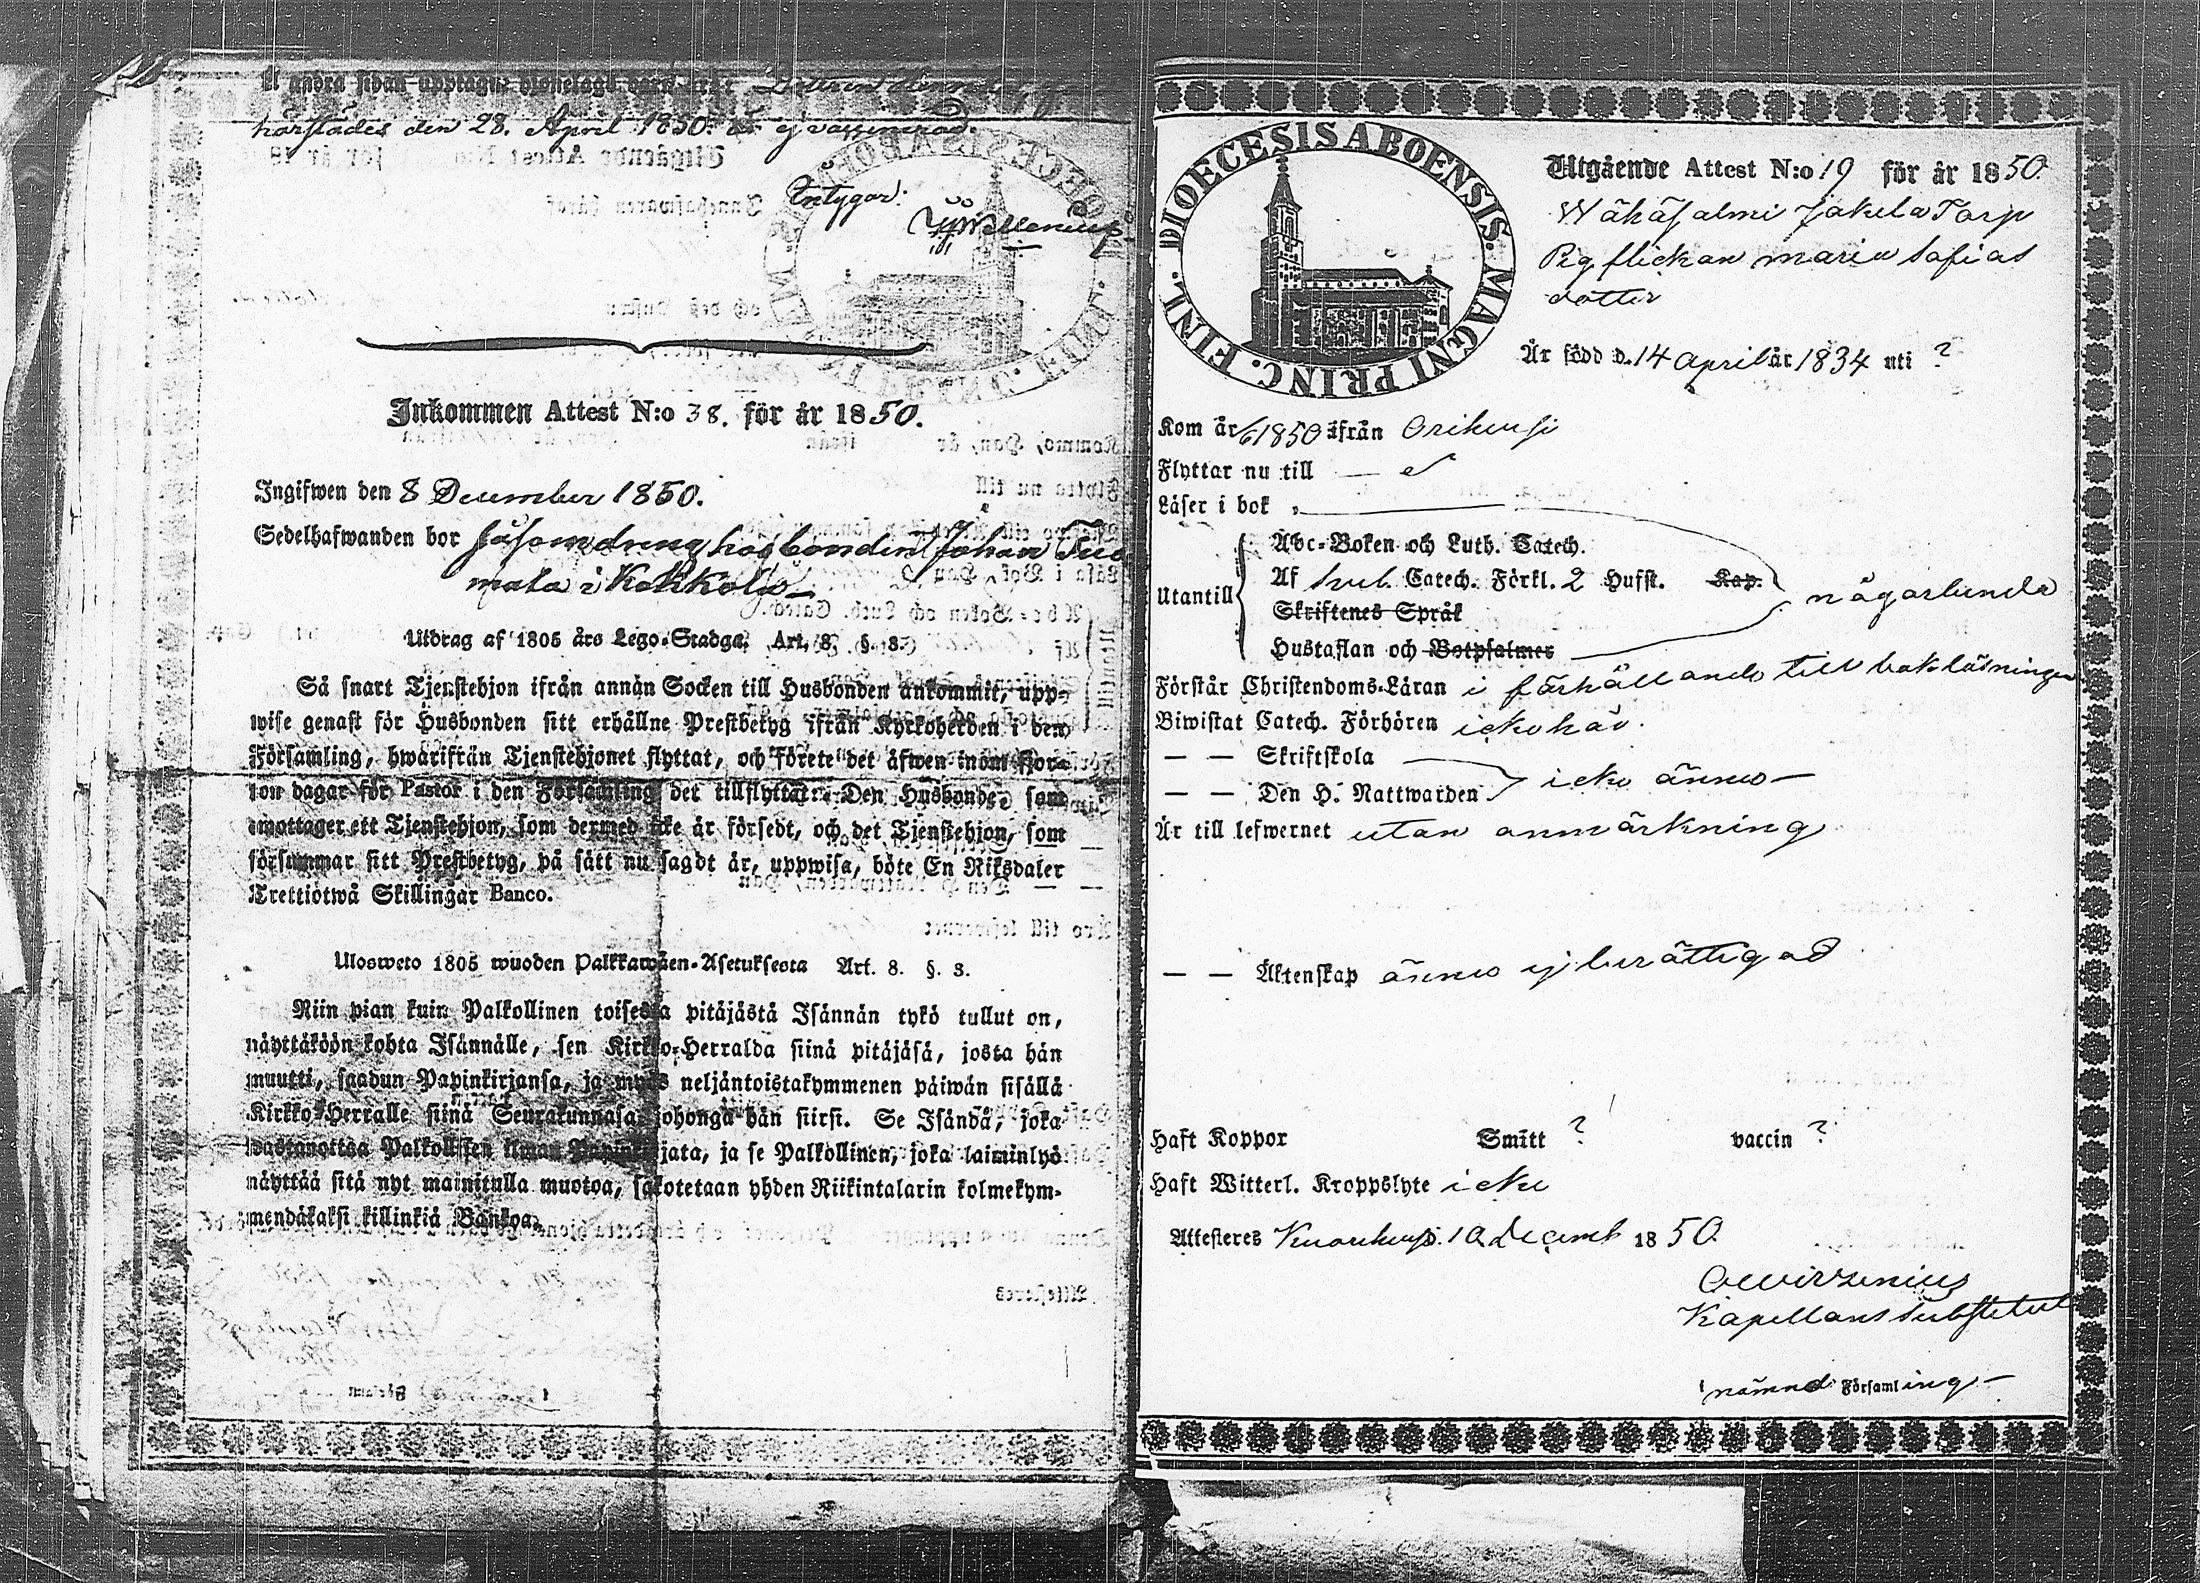 härstädes den 28. April 1850. är ej vaccinerad.
Intygar:
Inkommen Attest N:o 38. för år 1850.
Ingifwen den 8 December 1850.
Sedelhafwanden bor såsom dreng hos bonden Johan Tuo
mala i Kokkola
Utdrag af 1805 års Lego-Stadga, Art. 8. §. 3.
Så snart Tjenstehjon ifrån annan Socken till Husbonden ankommit, upp-
wise genast för Husbonden sitt erhållne Prestbetyg ifrån Kyrkoherden i den
Församling, hwarifrån Tjenstehjonet flyttat, och förete det äfwen inom fjor-
ton dagar för Pastor i den Församling det tillflyttat. Den Husbonde, som
emottager ett Tjenstehjon, som dermed icke är försedt, och det Tjenstehjon, som
försummar sitt Prestbetyg, på sätt nu sagdt är, uppwisa, böte En Riksdaler
Trettiotwå Skillingar Banco.
Ulosweto 1805 wuoden Palkkawäen-Asetuksesta Art. 8. §. 3.
Niin pian kuin Palkollinen toisesta pitäjästä Isännän tykö tullut on,
näyttäköön kohta Isännälle, sen Kirkko-Herralda siinä pitäjäsä, josta hän
muutti, saadun Papinkirjansa, ja myös neljäntoistakymmenen päiwän sisällä
Kirkko-Herralle siinä Seurakunnasa johonga hän siirsi. Se Isändä, joka
wastanottaa Palkollisen ilman Papinkirjata, ja se Palkollinen, joka laiminlyö
näyttää sitä nyt mainitulla muotoa, sakotetaan yhden Riikintalarin kolmekym-
mendäkaksi killinkiä Bankoa.
DIOECESIS ABOENSIS. MAGNI PRINC. FINL.
Utgående Attest N:o 19 för år 1850.
Wähäsalmi Jakela Torp
Pig flickan Maria Sofias
dotter
Är född d. 14 April år 1834 uti ?
Kom år 1850 ifrån Orihensi
Flyttar nu till
Läser i bok
Utantill
Abc-Boken och Luth. Catech.
Af Sveb. Catech. Förkl. 2 Hufst. Kap.
någorlunda
Skriftenes Språk
Hustaflan och Botpsalmer
Förstår Christendoms-Läran i förhållande till bokläsningen
Biwistat Catech. Förhören icke här.
— — Skriftskola
— — Den H. Nattwarden icke ännu —
Är till lefwernet utan anmärkning
— — Äktenskap ännu ej berättigad
Haft Koppor Smitt ? vaccin ?
Haft Witterl. Kroppslyte icke
Attesteres 10 Decemb 1850.
Kapellans Substitut
i nämnd Församling —